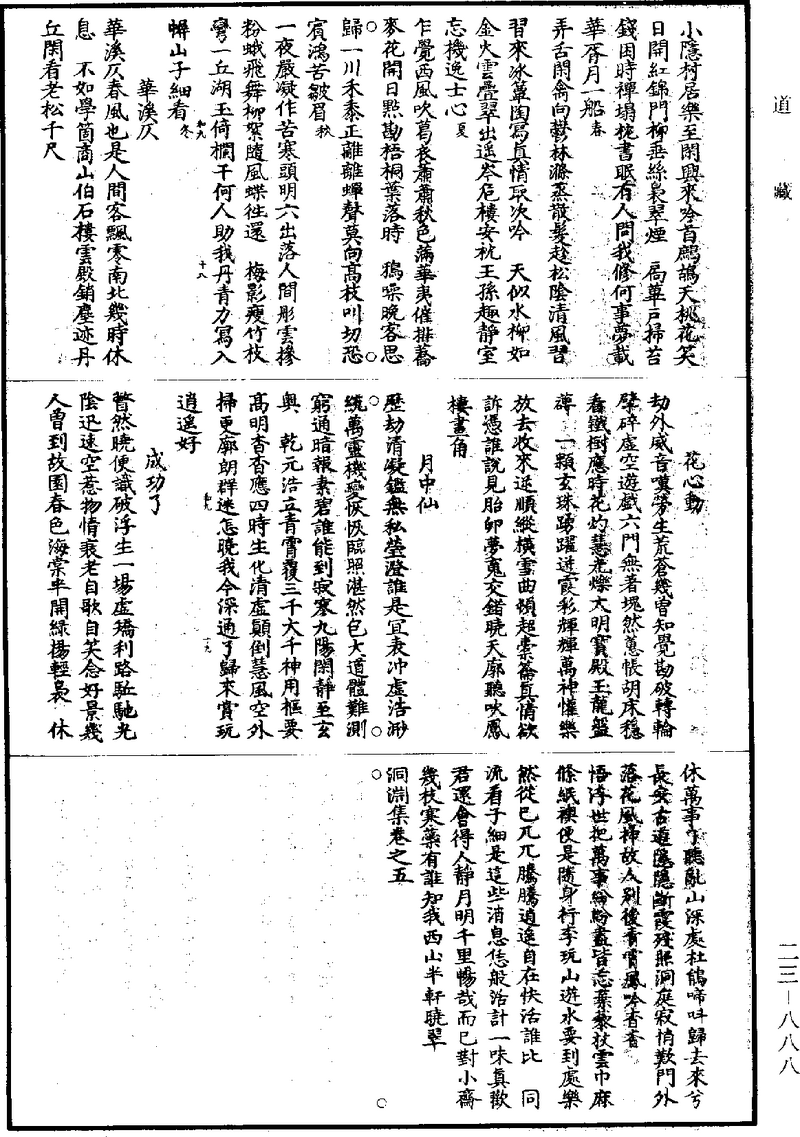 道藏
小隱村居樂至閑興來吟首鷓鴣天桃花笑
日開紅錦門柳垂絲裊翠煙　扃蓽戶掃苔
錢困時禪榻枕書眠有人問我修何事夢載
華胥月一船春
弄舌閑禽向欝林滌蒸散髮趂松陰清風習
習來冰簟陶寫真情取次吟　天似水柳如
金火雲疊翠出遥岑危樓安枕王孫趣靜室
忘機逸士心夏
乍覺西風吹葛衣蕭蕭秋色滿華夷催排蕎
麥花開日㸃勘梧桐葉落時　鴉噪晚客思
歸一川禾黍正離離蟬聲莫向髙枝叫切恐
賓鴻苦皺眉秋
一夜嚴凝作苦寒頭明六出落人間彤雲摻
粉蛾飛舞柳絮隨風蝶往還　梅影瘦竹枝
彎一丘湖玉倚欄干何人助我丹青力寫入
幈山子細看冬
華溪仄
華溪仄春風也是人間客飄零南北幾時休
息　不如學箇商山伯石樓雲殿銷塵迹丹
丘閑看老松千尺
花心動
劫外威音嘆勞生荒蒼幾曾知覺勘破轉輪
擘碎虛空遊戲六門無著塊然蕙帳胡床穩
看鐵樹應時花灼慧光爍大明寶殿玉龍盤
礴　一顆玄珠踴躍迸霞彩輝輝萬神懽樂
放去收來逆順縱橫雪曲頓超橐籥真情欲
訴憑誰說見胎卵夢寬交錯曉天廓聽吹鳳
樓畫角
月中仙
歷劫清凝鑑無私瑩澄誰是宜表冲虛浩渺
統萬靈機變恢恢臨照湛然包大道體難測
窮通暗報素碧誰能到寂寞九陽閑靜至玄
奧　乾元浩立青霄覆三千大千神用樞要
髙明杳杳應四時生化清虛顛倒慧風空外
掃更廓朗群迷怎曉我今深通了歸來賞玩
逍遥好
成功了
瞥然曉便識破浮生一場虛矯利路駈馳光
陰迅速空惹物情衰老自歌自笑念好景幾
人曾到故園春色海棠半開緑楊輕裊　休
休萬事了聽亂山深處杜鵑啼呌歸去來兮
長安古道隱隱斷霞殘照洞庭寂悄歎門外
落花風掃故人別後青霄鳳吟杳杳
悟浮世把萬事紛紛盡皆忘棄藜杖雲巾麻
絛紙襖便是隨身行李玩山遊水要到處樂
然從已兀兀騰騰逍遥自在快活誰比　同
流看子細是這些消息恁般活計一味真歡
君還會得人靜月明千里暢哉而已對小齋
幾枝寒蘂有誰知我西山半軒曉翠
洞淵集卷之五
二三—八八八